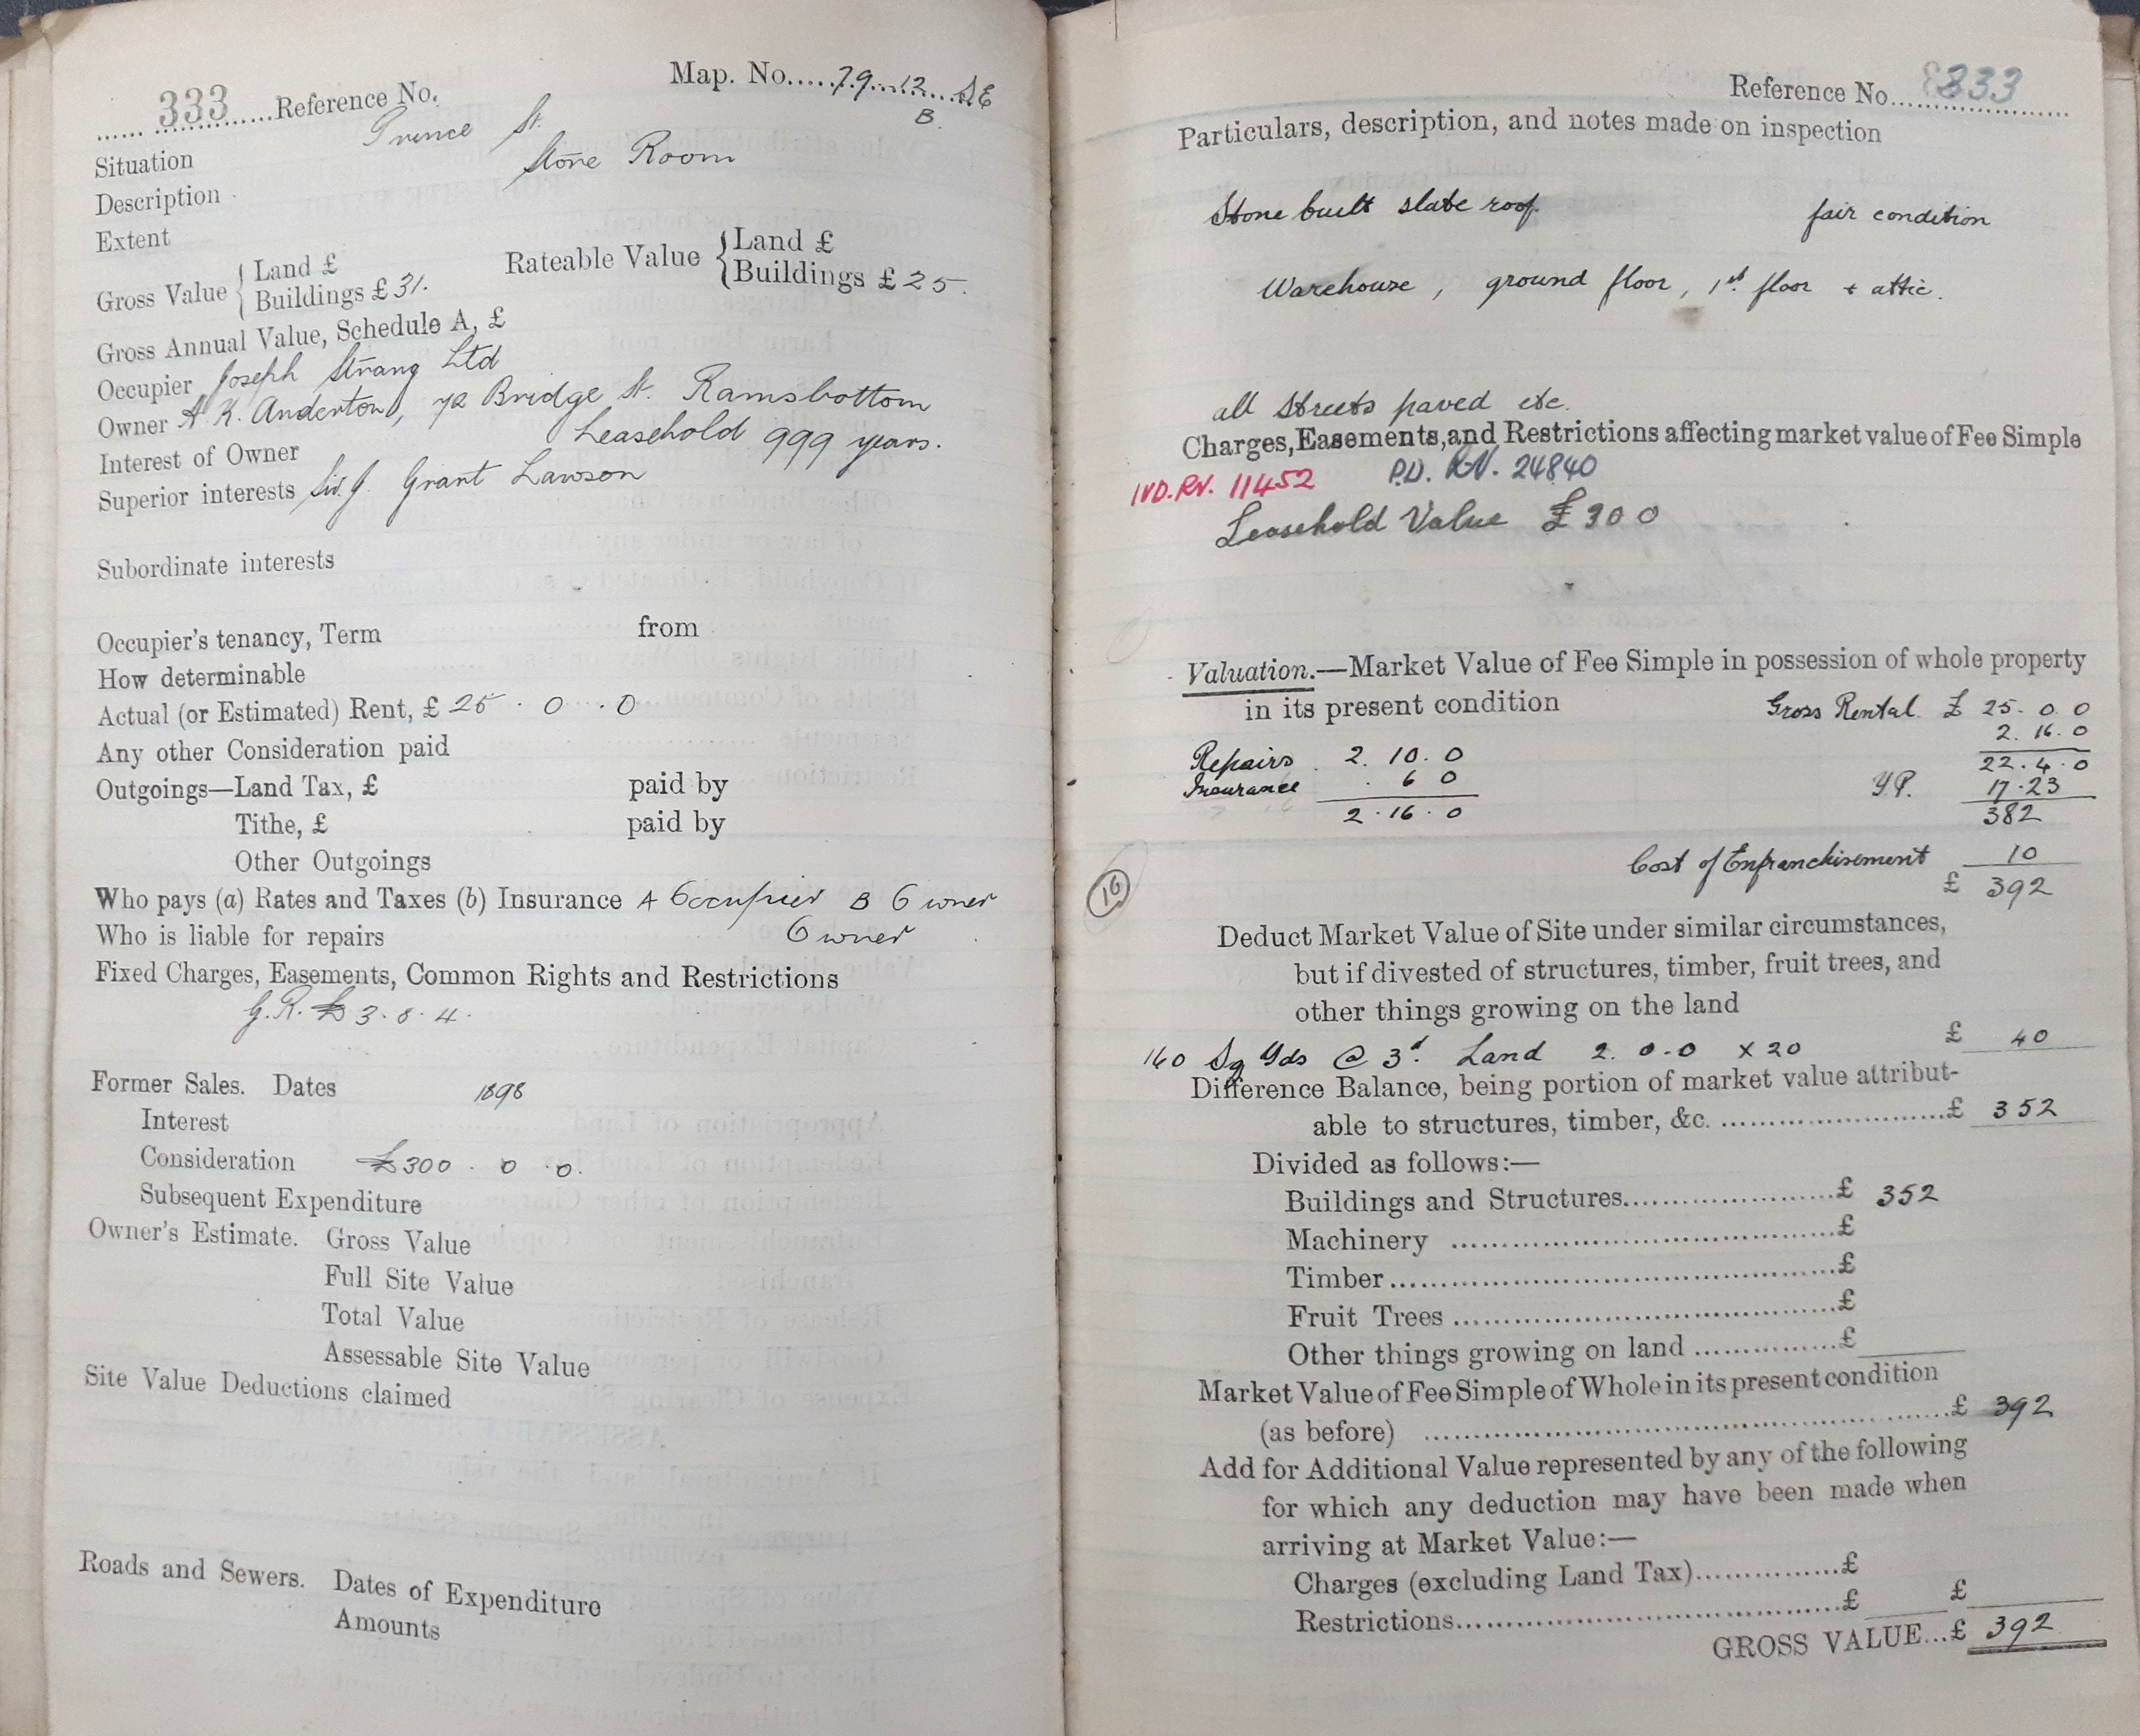 333 Reference No. Map. No. 79. 12 SE
B.
Situation Prince St.
Description Store Room
Extent
Gross Value { Land £ Buildings £ 31. Rateable Value { Land £ Buildings £ 25.
Gross Annual Value, Schedule A, £
Occupier Joseph Strang Ltd
Owner A K. Anderton, 72 Bridge St. Ramsbottom
Interest of Owner Leasehold 999 years.
Superior interests Sir. J. Grant Lawson
Subordinate interests
Occupier's tenancy, Term from
How determinable
Actual (or Estimated) Rent, £ 25 . 0 . 0
Any other Consideration paid
Outgoings—Land Tax, £ paid by
Tithe, £ paid by
Other Outgoings
Who pays (a) Rates and Taxes (b) Insurance A Occupier B Owner
Who is liable for repairs Owner
Fixed Charges, Easements, Common Rights and Restrictions
G.R. £ 3. 8. 4.
Former Sales. Dates 1898
Interest
Consideration £300 . 0 . 0.
Subsequent Expenditure
Owner's Estimate. Gross Value
Full Site Value
Total Value
Assessable Site Value
Site Value Deductions claimed
Roads and Sewers. Dates of Expenditure
Amounts
Reference No. 333
Particulars, description, and notes made on inspection
Stone built slate roof. fair condition
Warehouse, ground floor, 1st floor + attic.
all Streets paved etc.
Charges, Easements, and Restrictions affecting market value of Fee Simple
IVD. RV. 11452 P.D. RV. 24840
Leasehold Value £300
Valuation.—Market Value of Fee Simple in possession of whole property
in its present condition Gross Rental £ 25. 0. 0
2. 16. 0
Repairs 2. 10. 0 22. 4. 0
Insurance . 6 0 Y.P. 17.23
2. 16. 0 382
Cost of Enfranchisement 10
£ 392
16
Deduct Market Value of Site under similar circumstances,
but if divested of structures, timber, fruit trees, and
other things growing on the land
160 Sq Yds @ 3d. Land 2. 0.0 x 20 £ 40
Difference Balance, being portion of market value attribut-
able to structures, timber, &c. £ 352
Divided as follows:—
Buildings and Structures £ 352
Machinery £
Timber £
Fruit Trees £
Other things growing on land £
Market Value of Fee Simple of Whole in its present condition
(as before) £ 392
Add for Additional Value represented by any of the following
for which any deduction may have been made when
arriving at Market Value:—
Charges (excluding Land Tax) £
Restrictions £ £
GROSS VALUE...£ 392